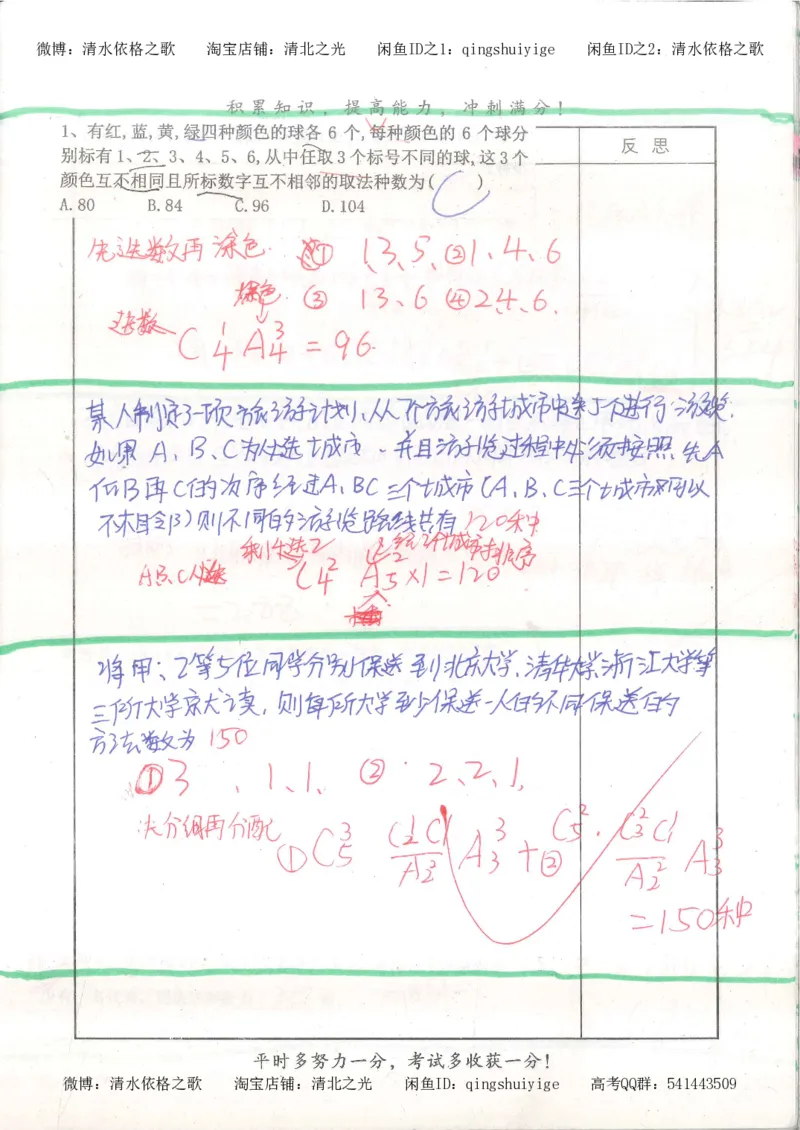 微博：清水依格之歌 淘宝店铺：清北之光 闲鱼ID之1：qingshuiyige 闲鱼ID之2：清水依格之歌
积累知识，提高能力，冲刺满分！
1、有红,蓝,黄,绿四种颜色的球各 6 个,每种颜色的 6 个球分
别标有 1、2、3、4、5、6,从中任取 3 个标号不同的球,这 3 个
颜色互不相同且所标数字互不相邻的取法种数为( C )
A.80 B.84 C.96 D.104
反思
先选数再涂色. ① 1、3、5 ② 1、4、6
涂色 ③ 1 3、6 ④ 2、4、6.
选数
C₄¹ A₄³ = 96.
某人制定了一项旅游计划,从7个旅游城市中选5个进行游览.
如果A、B、C为必选城市、并且游览过程中必须按照先A
后B再C的次序经过A、B C三个城市(A、B、C三个城市可以
不相邻)则不同的游览路线共有120种
剩4选2
给2个城市排序
ABC必选 C₄² A₅² ×1=120
将甲、乙等5位同学分别保送到北京大学、清华大学、浙江大学等
三所大学就读，则每所大学至少保送一人的不同保送的
方法数为 150
① 3、1、1、 ② 2、2、1,
先分组再分配
① C₅³ C₂¹C₁¹/A₂² A₃³ + ② C₅²·C₃²C₁¹/A₂² A₃³
=150种
平时多努力一分，考试多收获一分！
微博：清水依格之歌 淘宝店铺：清北之光 闲鱼ID：qingshuiyige 高考QQ群：541443509